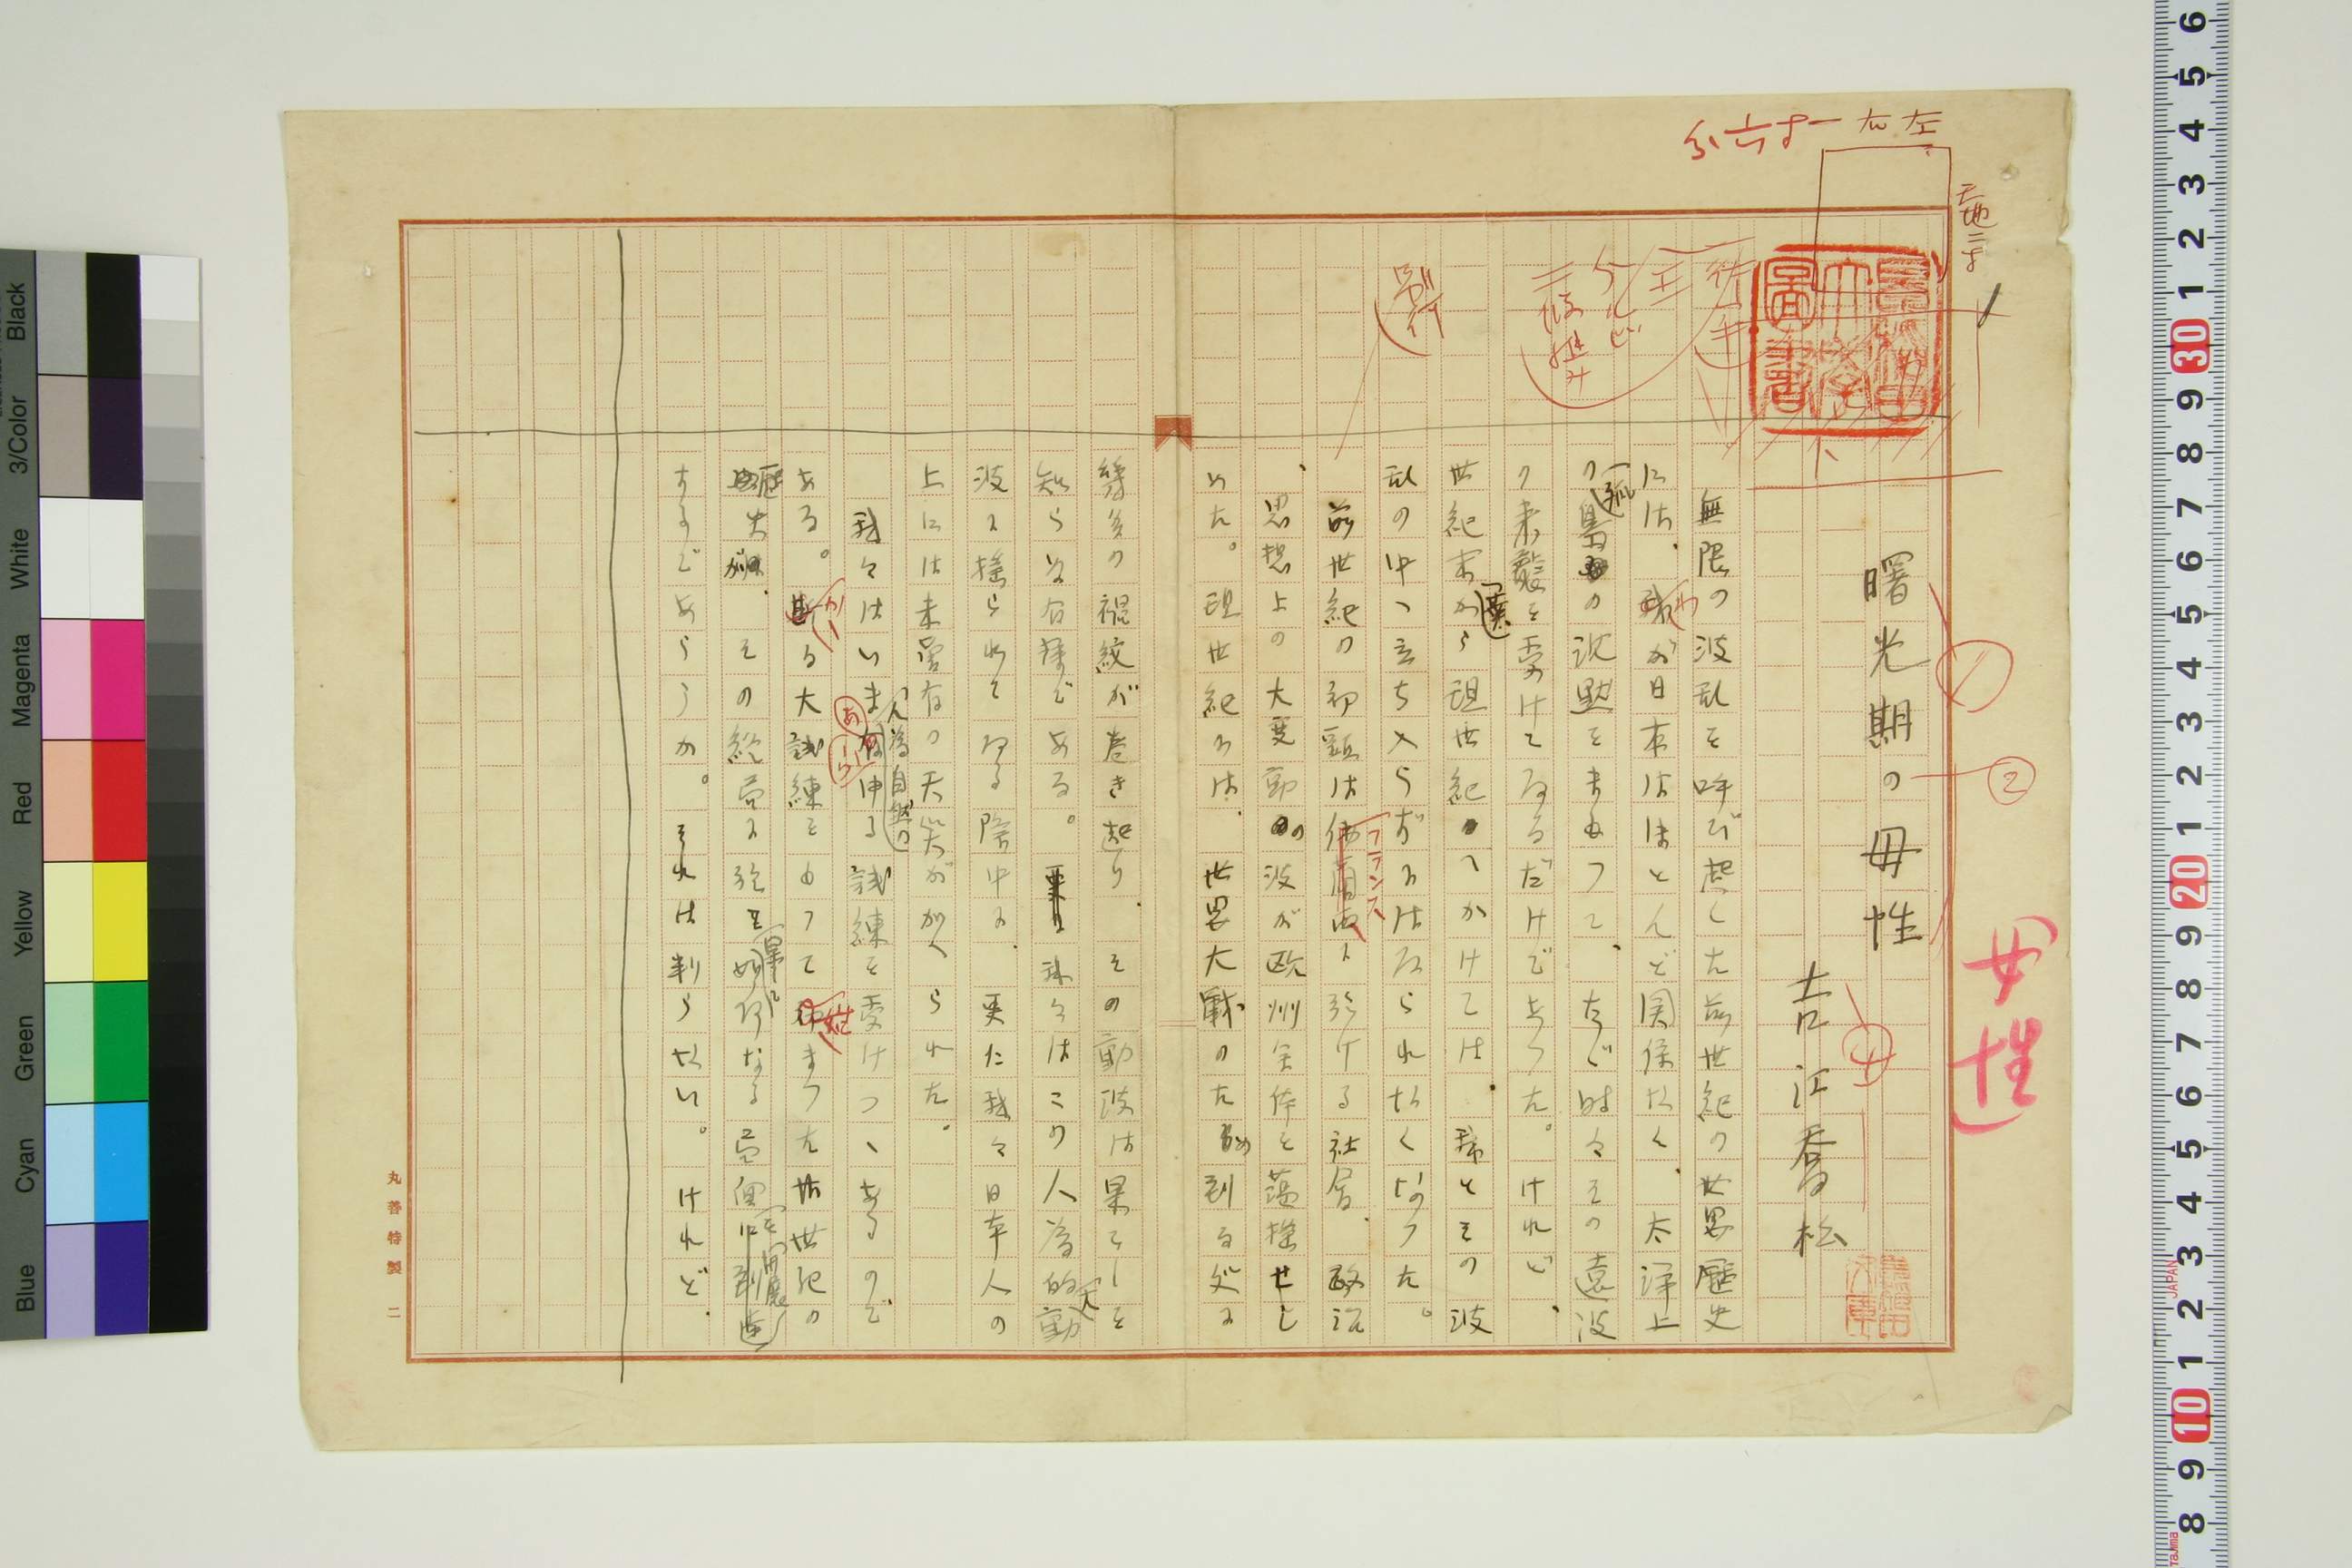 曙光期の母性
吉江喬松
無限の波乱を呼び起した前世紀の世界歴史
には、わが日本はほとんど関係なく、太洋上
の孤島の沈黙をまもつて、たゞ時々その遠波
の来襲を受けてゐるだけであつた。けれど、
世紀末から現世紀へかけては、我とその波
乱の中へ立ち入らずにはゐられなくなつた。
前世紀の初頭はフランスに於ける社会、政治
思想上の大変動の波が欧州全体を蕩揺せし
めた。現世紀には、世界大戦のため到る処に
幾多の褶紋が巻き起り、その動波は果てしを
知らない有様である。我々はこの人為的大動
波に揺られてゐる際中に、更に我々日本人の
上には未曾有の天災が加へられた。
我々はいま人為自然のあらゆる試練を受けつゝあるので
ある。かゝる大試練をもつて始まつた廿世紀の
歴史が、その終局に於て果して如何なる局面を開展
するであらうか。それは判らない。けれど、
女性
別行
左右一寸六分
天地二寸
二段組み
丸善特製 二